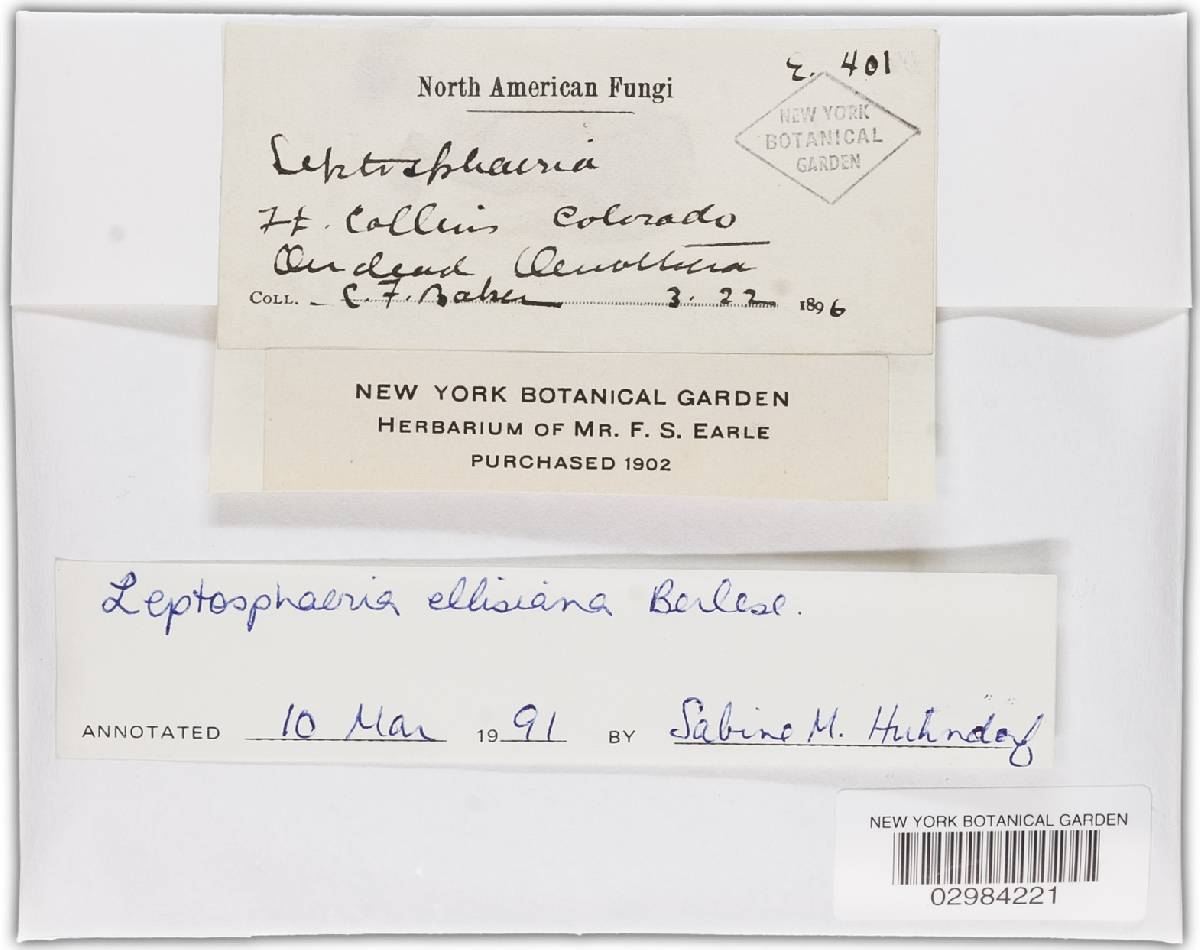 E. 401
North American Fungi
NEW YORK
BOTANICAL
GARDEN
Leptosphaeria
Ft. Collins Colorado
On dead Oenothera
COLL. C. F. Baker 3. 22 1896
NEW YORK BOTANICAL GARDEN
HERBARIUM OF MR. F. S. EARLE
PURCHASED 1902
Leptosphaeria ellisiana Berlese.
ANNOTATED 10 Mar 1991 BY Sabine M. Huhndorf
NEW YORK BOTANICAL GARDEN
02984221